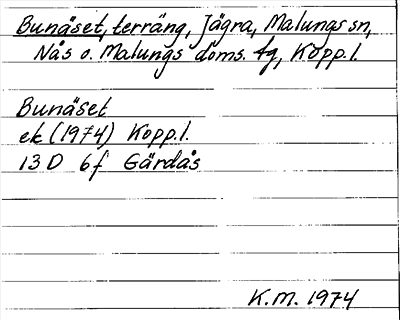 Bunäset, terräng, Jägra, Malungs sn,
Nås o. Malungs doms. tg, Kopp.l.
Bunäset
ek (1974) Kopp.l.
13 D 6f Gärdås
K.M. 1974